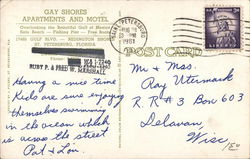 GAY SHORES
APARTMENTS AND MOTEL
Overlooking the Beautiful Gulf of Mexico
Safe Beach — Fishing Pier — Free Boats
17485 GULF BLVD. — REDINGTON SHORES
ST. PETERSBURG, FLORIDA
RUBY P. & FRED W. MARSHALL
ST. PETERSBURG
PM
1961
LIBERTY
POST CARD
Having a nice time
Kids are sure enjoying
themselves swimming
in the ocean which
is across the street
Pat & Lou.
Mr & Mrs.
Ray Utermark
R.R # 3 Box 603
Delavan
Wisc.